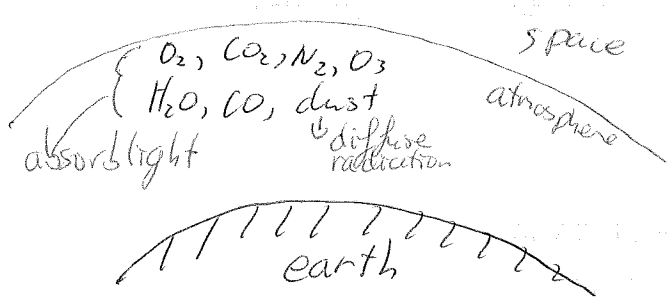 space
O₂, CO₂, N₂, O₃
H₂O, CO, dust
atmosphere
absorb light
diffuse
radiation
earth